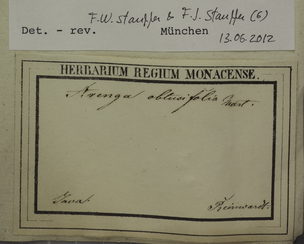 F.W. Stauffer & F.J. Stauffer (G)
Det. – rev. München 13.06.2012
HERBARIUM REGIUM MONACENSE.
Arenga obtusifolia Mart.
Java. Reinwardt.